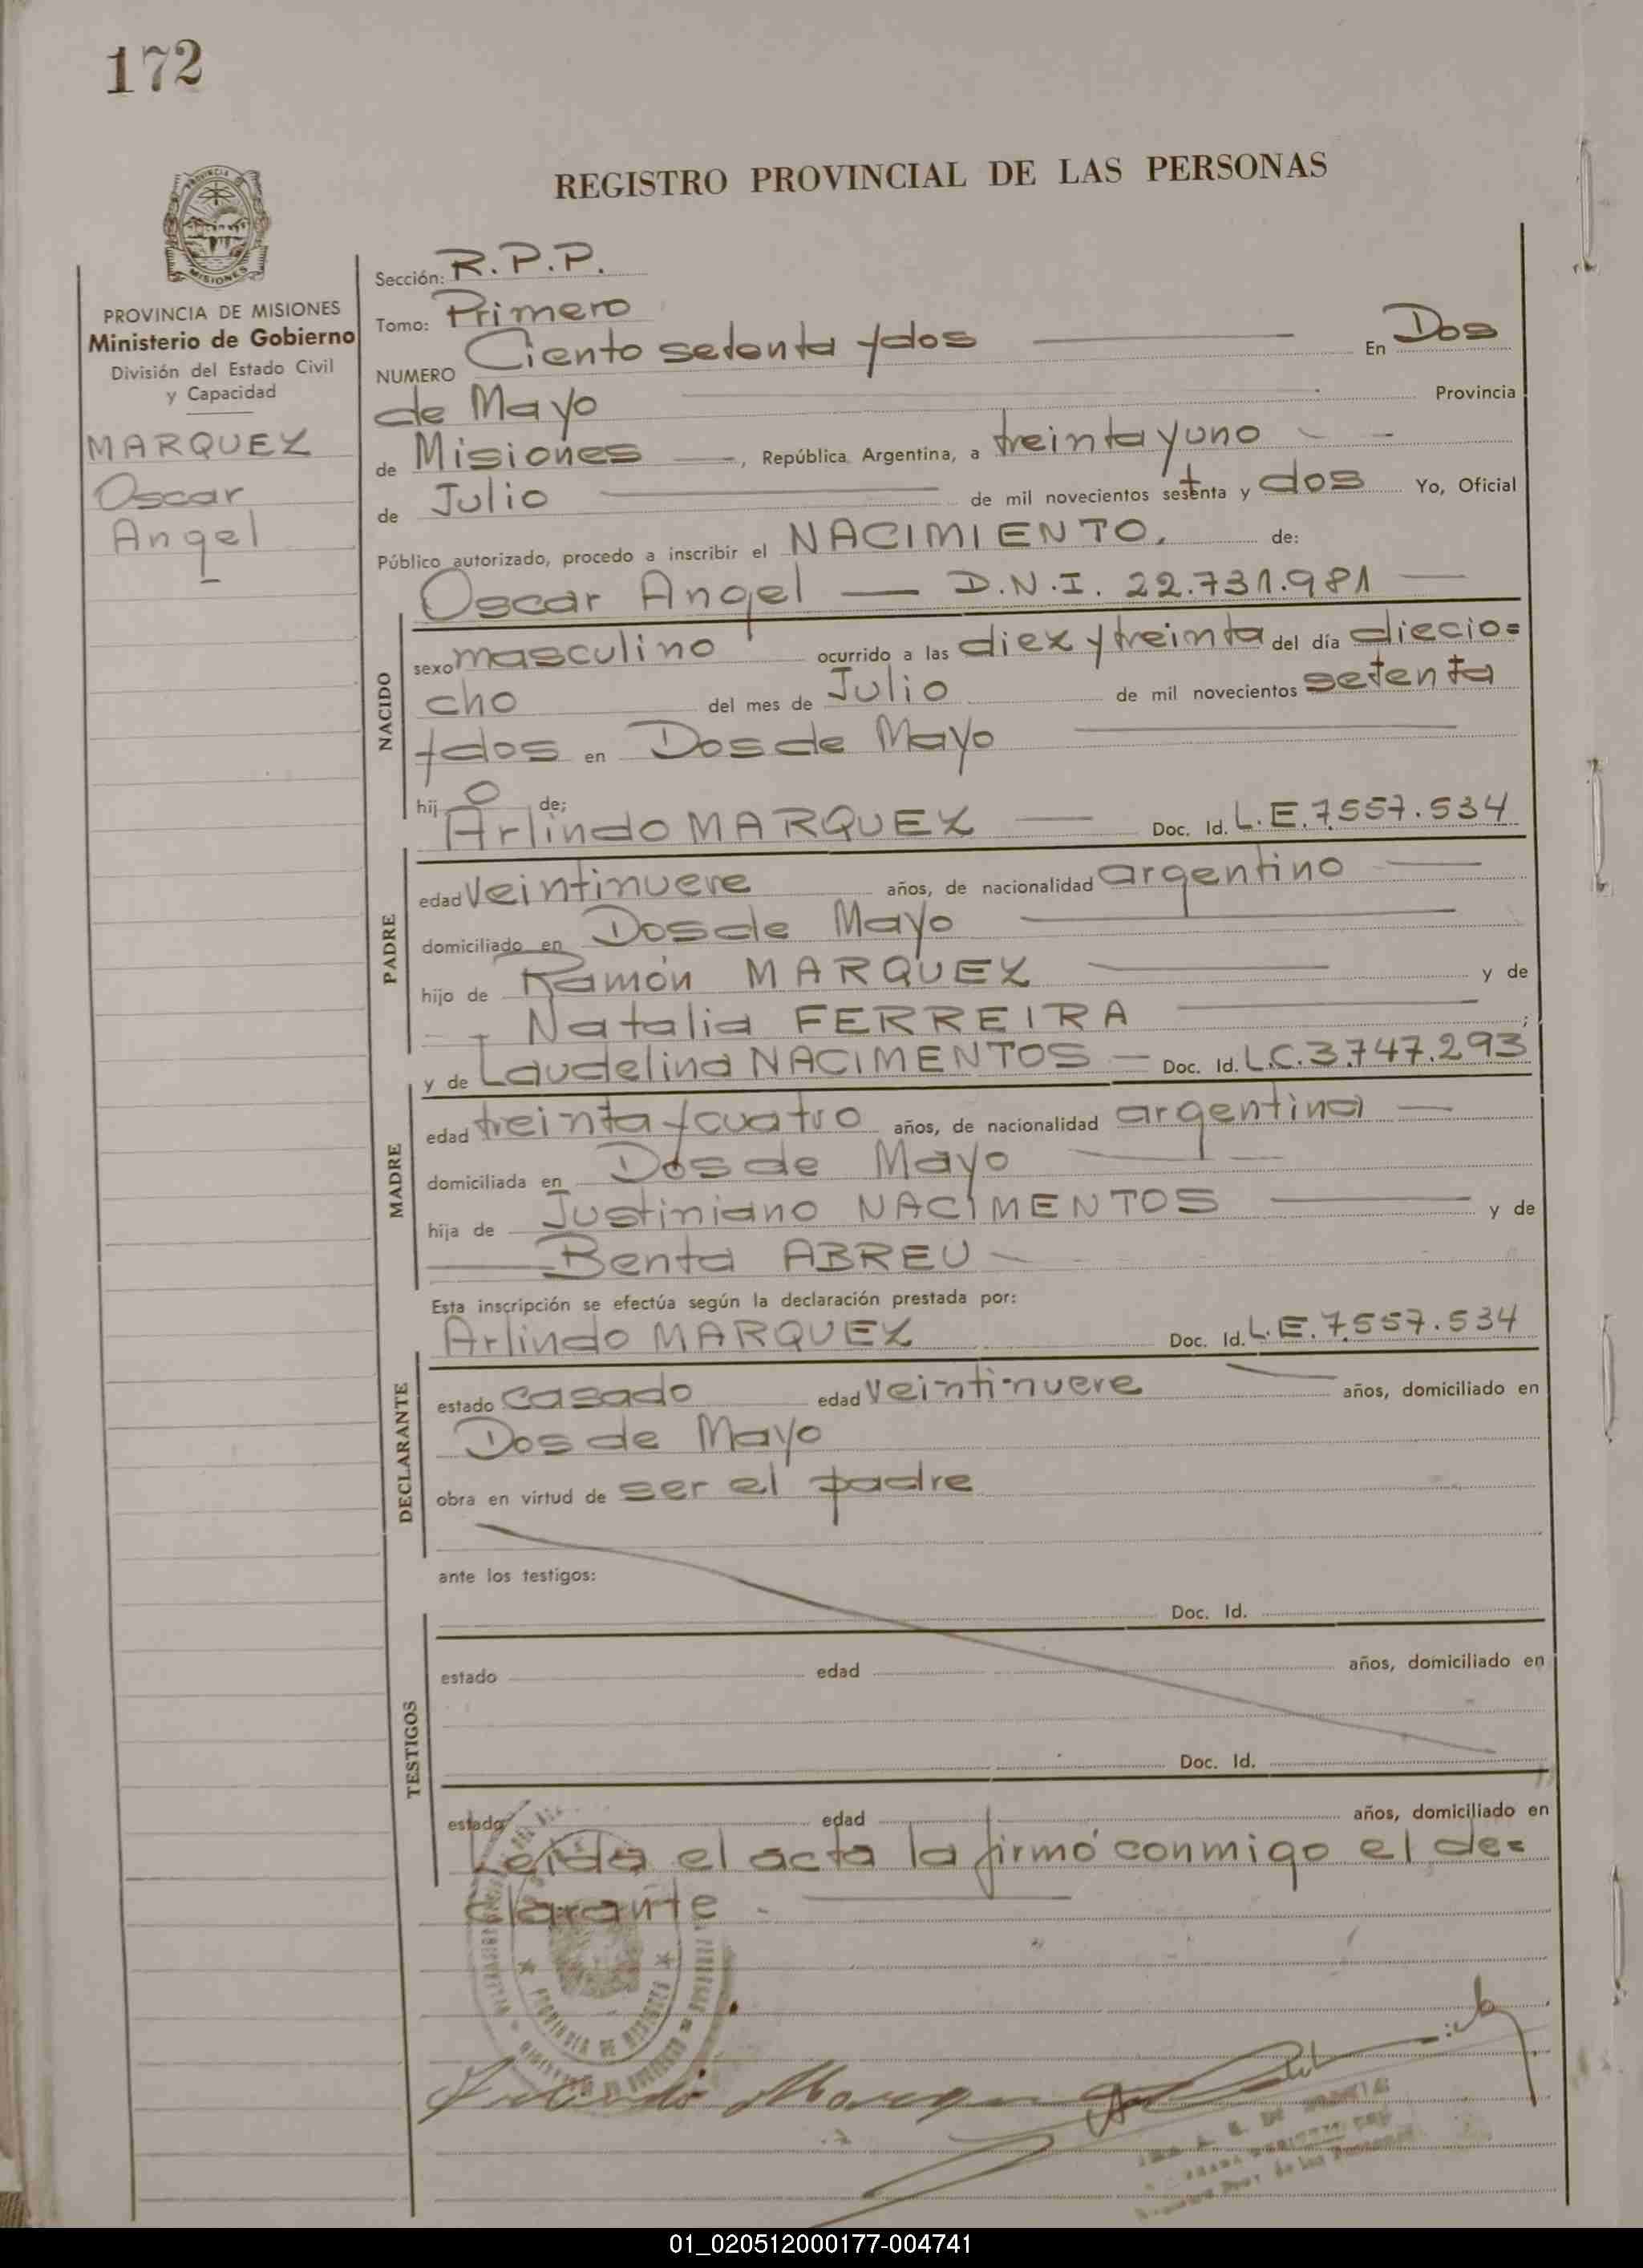 172
REGISTRO PROVINCIAL DE LAS PERSONAS
PROVINCIA
MISIONES
PROVINCIA DE MISIONES
Ministerio de Gobierno
División del Estado Civil
y Capacidad
MARQUEZ
Oscar
Angel
Sección: R.P.P.
Tomo: Primero
NUMERO Ciento setenta y dos En Dos
de Mayo Provincia
de Misiones —, República Argentina, a treinta y uno
de Julio de mil novecientos setenta y dos Yo, Oficial
Público autorizado, procedo a inscribir el NACIMIENTO. de:
Oscar Angel — D.N.I. 22.731.981 —
NACIDO
sexo masculino ocurrido a las diez y treinta del día diecio=
cho del mes de Julio de mil novecientos setenta
y dos en Dos de Mayo
hij o de:
Arlindo MARQUEZ — Doc. Id. L.E.7.557.534
PADRE
edad veintinueve años, de nacionalidad argentino
domiciliado en Dos de Mayo
hijo de Ramón MARQUEZ y de
Natalia FERREIRA ;
y de Laudelina NACIMENTOS — Doc. Id. L.C.3.747.293
MADRE
edad treinta y cuatro años, de nacionalidad argentina —
domiciliada en Dos de Mayo
hija de Justiniano NACIMENTOS y de
Benta ABREU
Esta inscripción se efectúa según la declaración prestada por:
Arlindo MARQUEZ Doc. Id. L.E.7.557.534
DECLARANTE
estado casado edad veintinueve años, domiciliado en
Dos de Mayo
obra en virtud de ser el padre
ante los testigos:
Doc. Id.
TESTIGOS
estado edad años, domiciliado en
Doc. Id.
estado edad años, domiciliado en
Leida el acta la firmó conmigo el de=
clarante.
PROVINCIA DE MISIONES
de las Personas
01_020512000177-004741